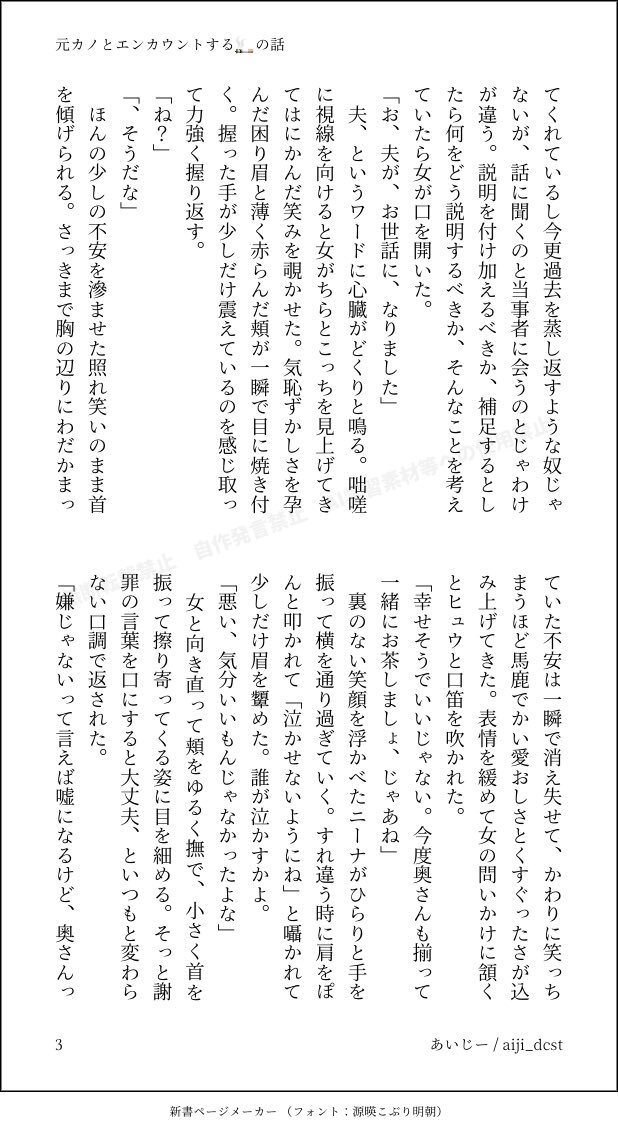 元カノとエンカウントする🚬の話
てくれているし今更過去を蒸し返すような奴じゃ
ないが、話に聞くのと当事者に会うのとじゃわけ
が違う。説明を付け加えるべきか、補足するとし
たら何をどう説明するべきか、そんなことを考え
ていたら女が口を開いた。
「お、夫が、お世話に、なりました」
夫、というワードに心臓がどくりと鳴る。咄嗟
に視線を向けると女がちらとこっちを見上げてき
てはにかんだ笑みを覗かせた。気恥ずかしさを孕
んだ困り眉と薄く赤らんだ頬が一瞬で目に焼き付
く。握った手が少しだけ震えているのを感じ取っ
て力強く握り返す。
「ね？」
「、そうだな」
ほんの少しの不安を滲ませた照れ笑いのまま首
を傾げられる。さっきまで胸の辺りにわだかまっ
ていた不安は一瞬で消え失せて、かわりに笑っち
まうほど馬鹿でかい愛おしさとくすぐったさが込
み上げてきた。表情を緩めて女の問いかけに頷く
とヒュウと口笛を吹かれた。
「幸せそうでいいじゃない。今度奥さんも揃って
一緒にお茶しましょ、じゃあね」
裏のない笑顔を浮かべたニーナがひらりと手を
振って横を通り過ぎていく。すれ違う時に肩をぽ
んと叩かれて「泣かせないようにね」と囁かれて
少しだけ眉を顰めた。誰が泣かすかよ。
「悪い、気分いいもんじゃなかったよな」
女と向き直って頬をゆるく撫で、小さく首を
振って擦り寄ってくる姿に目を細める。そっと謝
罪の言葉を口にすると大丈夫、といつもと変わら
ない口調で返された。
「嫌じゃないって言えば嘘になるけど、奥さんっ
3
あいじー / aiji_dcst
新書ページメーカー（フォント：源暎こぶり明朝）